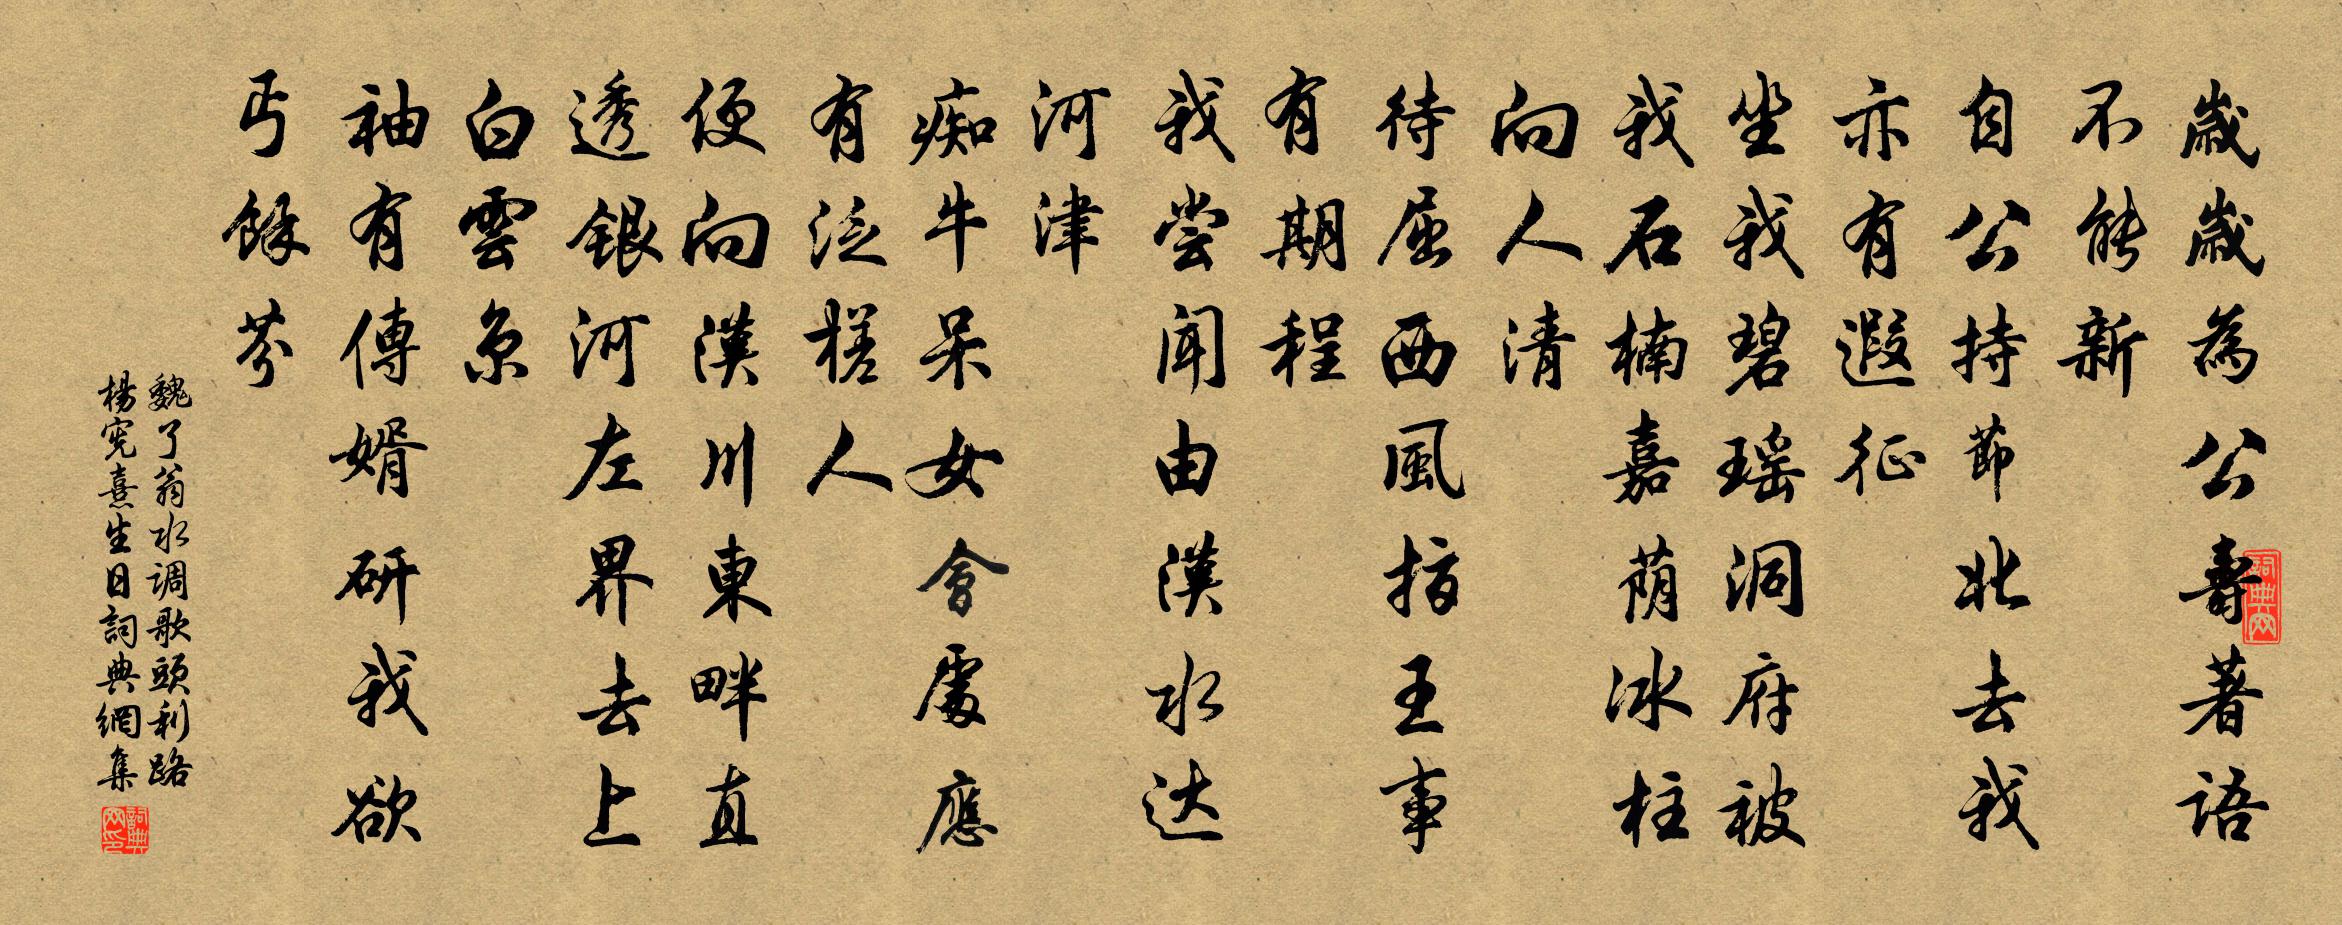 歲歲為公壽著語
不能新
自公持節北去我
亦有遐征
坐我碧瑶洞府被
我石楠嘉荫冰柱
向人清
待屈西風指王事
有期程
我尝闻由漢水达
河津
痴牛呆女會處應
有泛槎人
便向漢川東畔直
透銀河左界去上
白雲京
袖有傳婿研我欲
丐餘芬
魏了翁水调歌頭利路
楊宪熹生日詞典網集
詞典网
詞典网印